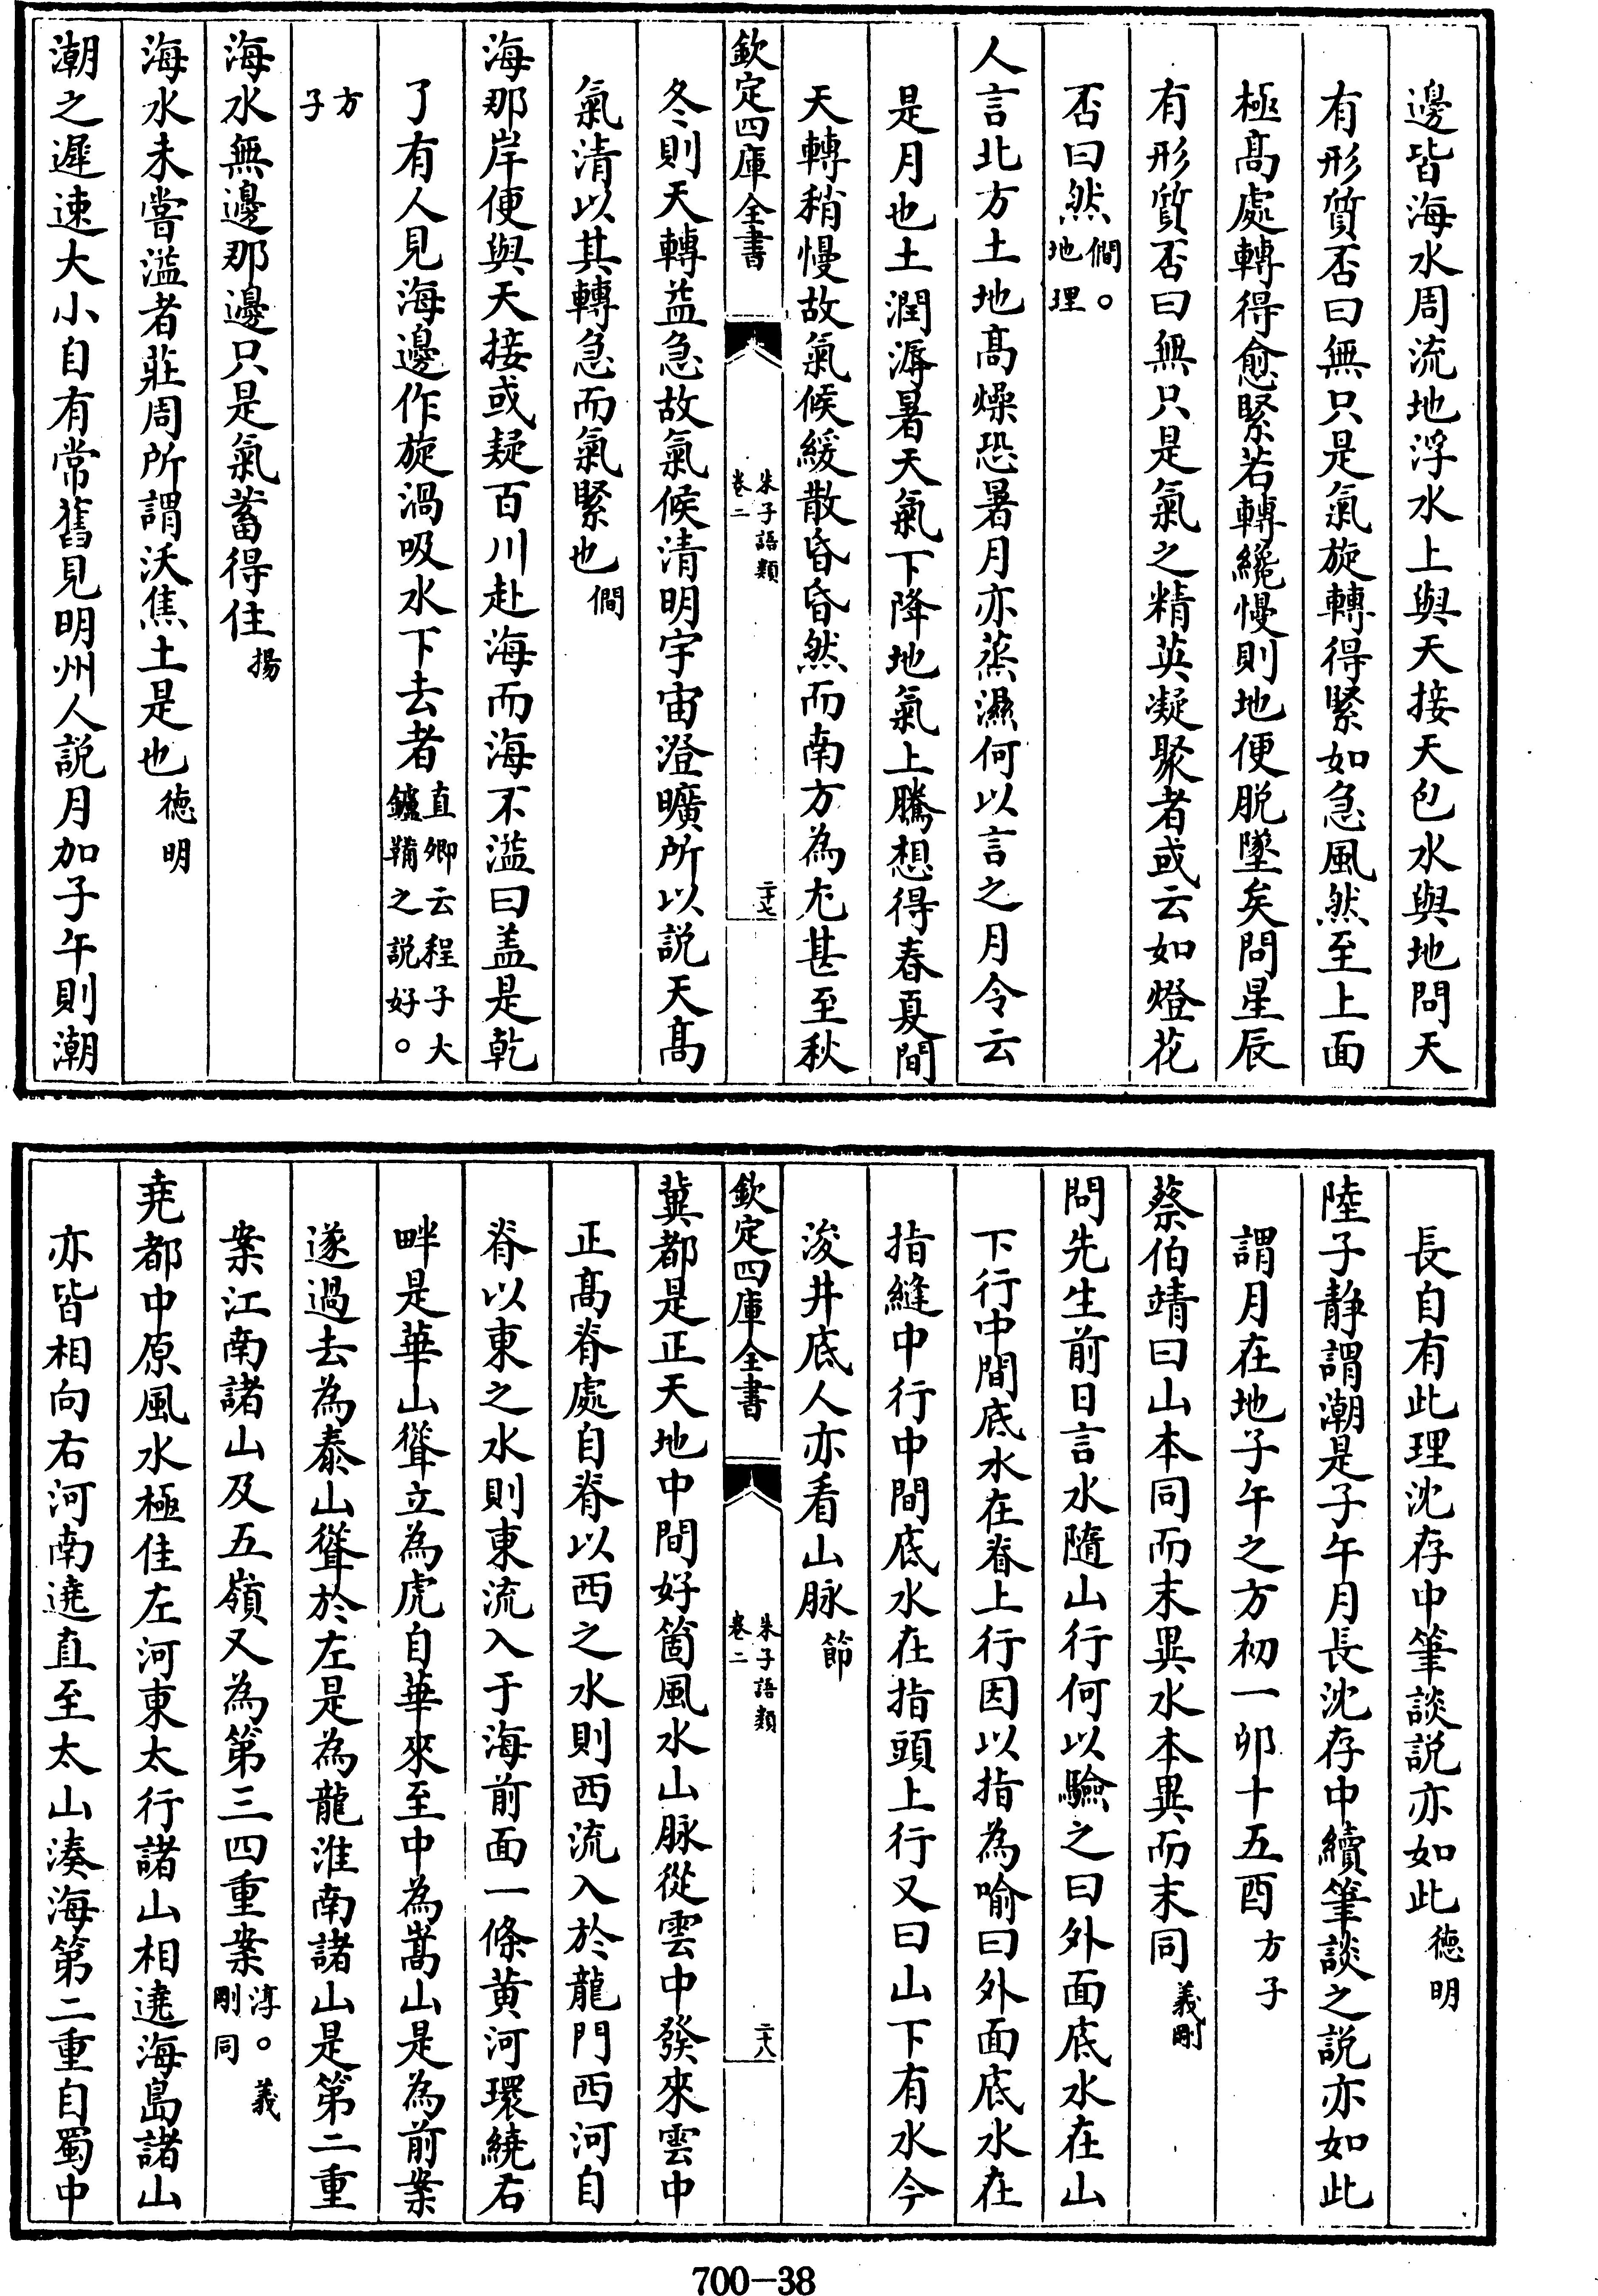 邊皆海水周流地浮水上與天接天包水與地問天
有形質否曰無只是氣旋轉得緊如急風然至上面
極髙處轉得愈緊若轉纔慢則地便脱墜矣問星辰
有形質否曰無只是氣之精英凝聚者或云如燈花
否曰然僩。地理
人言北方土地髙燥恐暑月亦蒸濕何以言之月令云
是月也土潤溽暑天氣下降地氣上騰想得春夏間
天轉稍慢故氣候緩散昏昏然而南方為尤甚至秋
欽定四庫全書
朱子語類
卷二
二十七
冬則天轉益急故氣候清明宇宙澄曠所以説天髙
氣清以其轉急而氣緊也僩
海那岸便與天接或疑百川赴海而海不溢曰盖是乾
了有人見海邊作旋渦吸水下去者直卿云程子大鑪鞴之説好。
方子
海水無邊那邊只是氣蓄得住揚
海水未嘗溢者莊周所謂沃焦土是也徳明
潮之遲速大小自有常舊見明州人説月加子午則潮
長自有此理沈存中筆談説亦如此徳明
陸子靜謂潮是子午月長沈存中續筆談之説亦如此
謂月在地子午之方初一卯十五酉方子
蔡伯靖曰山本同而末異水本異而末同義剛
問先生前日言水隨山行何以驗之曰外面底水在山
下行中間底水在脊上行因以指為喻曰外面底水在
指縫中行中間底水在指頭上行又曰山下有水今
浚井底人亦看山脉節
欽定四庫全書
朱子語類
卷二
二十八
冀都是正天地中間好箇風水山脉從雲中發來雲中
正髙脊處自脊以西之水則西流入於龍門西河自
脊以東之水則東流入于海前面一條黄河環繞右
畔是華山聳立為虎自華來至中為嵩山是為前案
遂過去為泰山聳於左是為龍淮南諸山是第二重
案江南諸山及五嶺又為第三四重案淳。義剛同
尭都中原風水極佳左河東太行諸山相遶海島諸山
亦皆相向右河南遶直至太山湊海第二重自蜀中
700-38